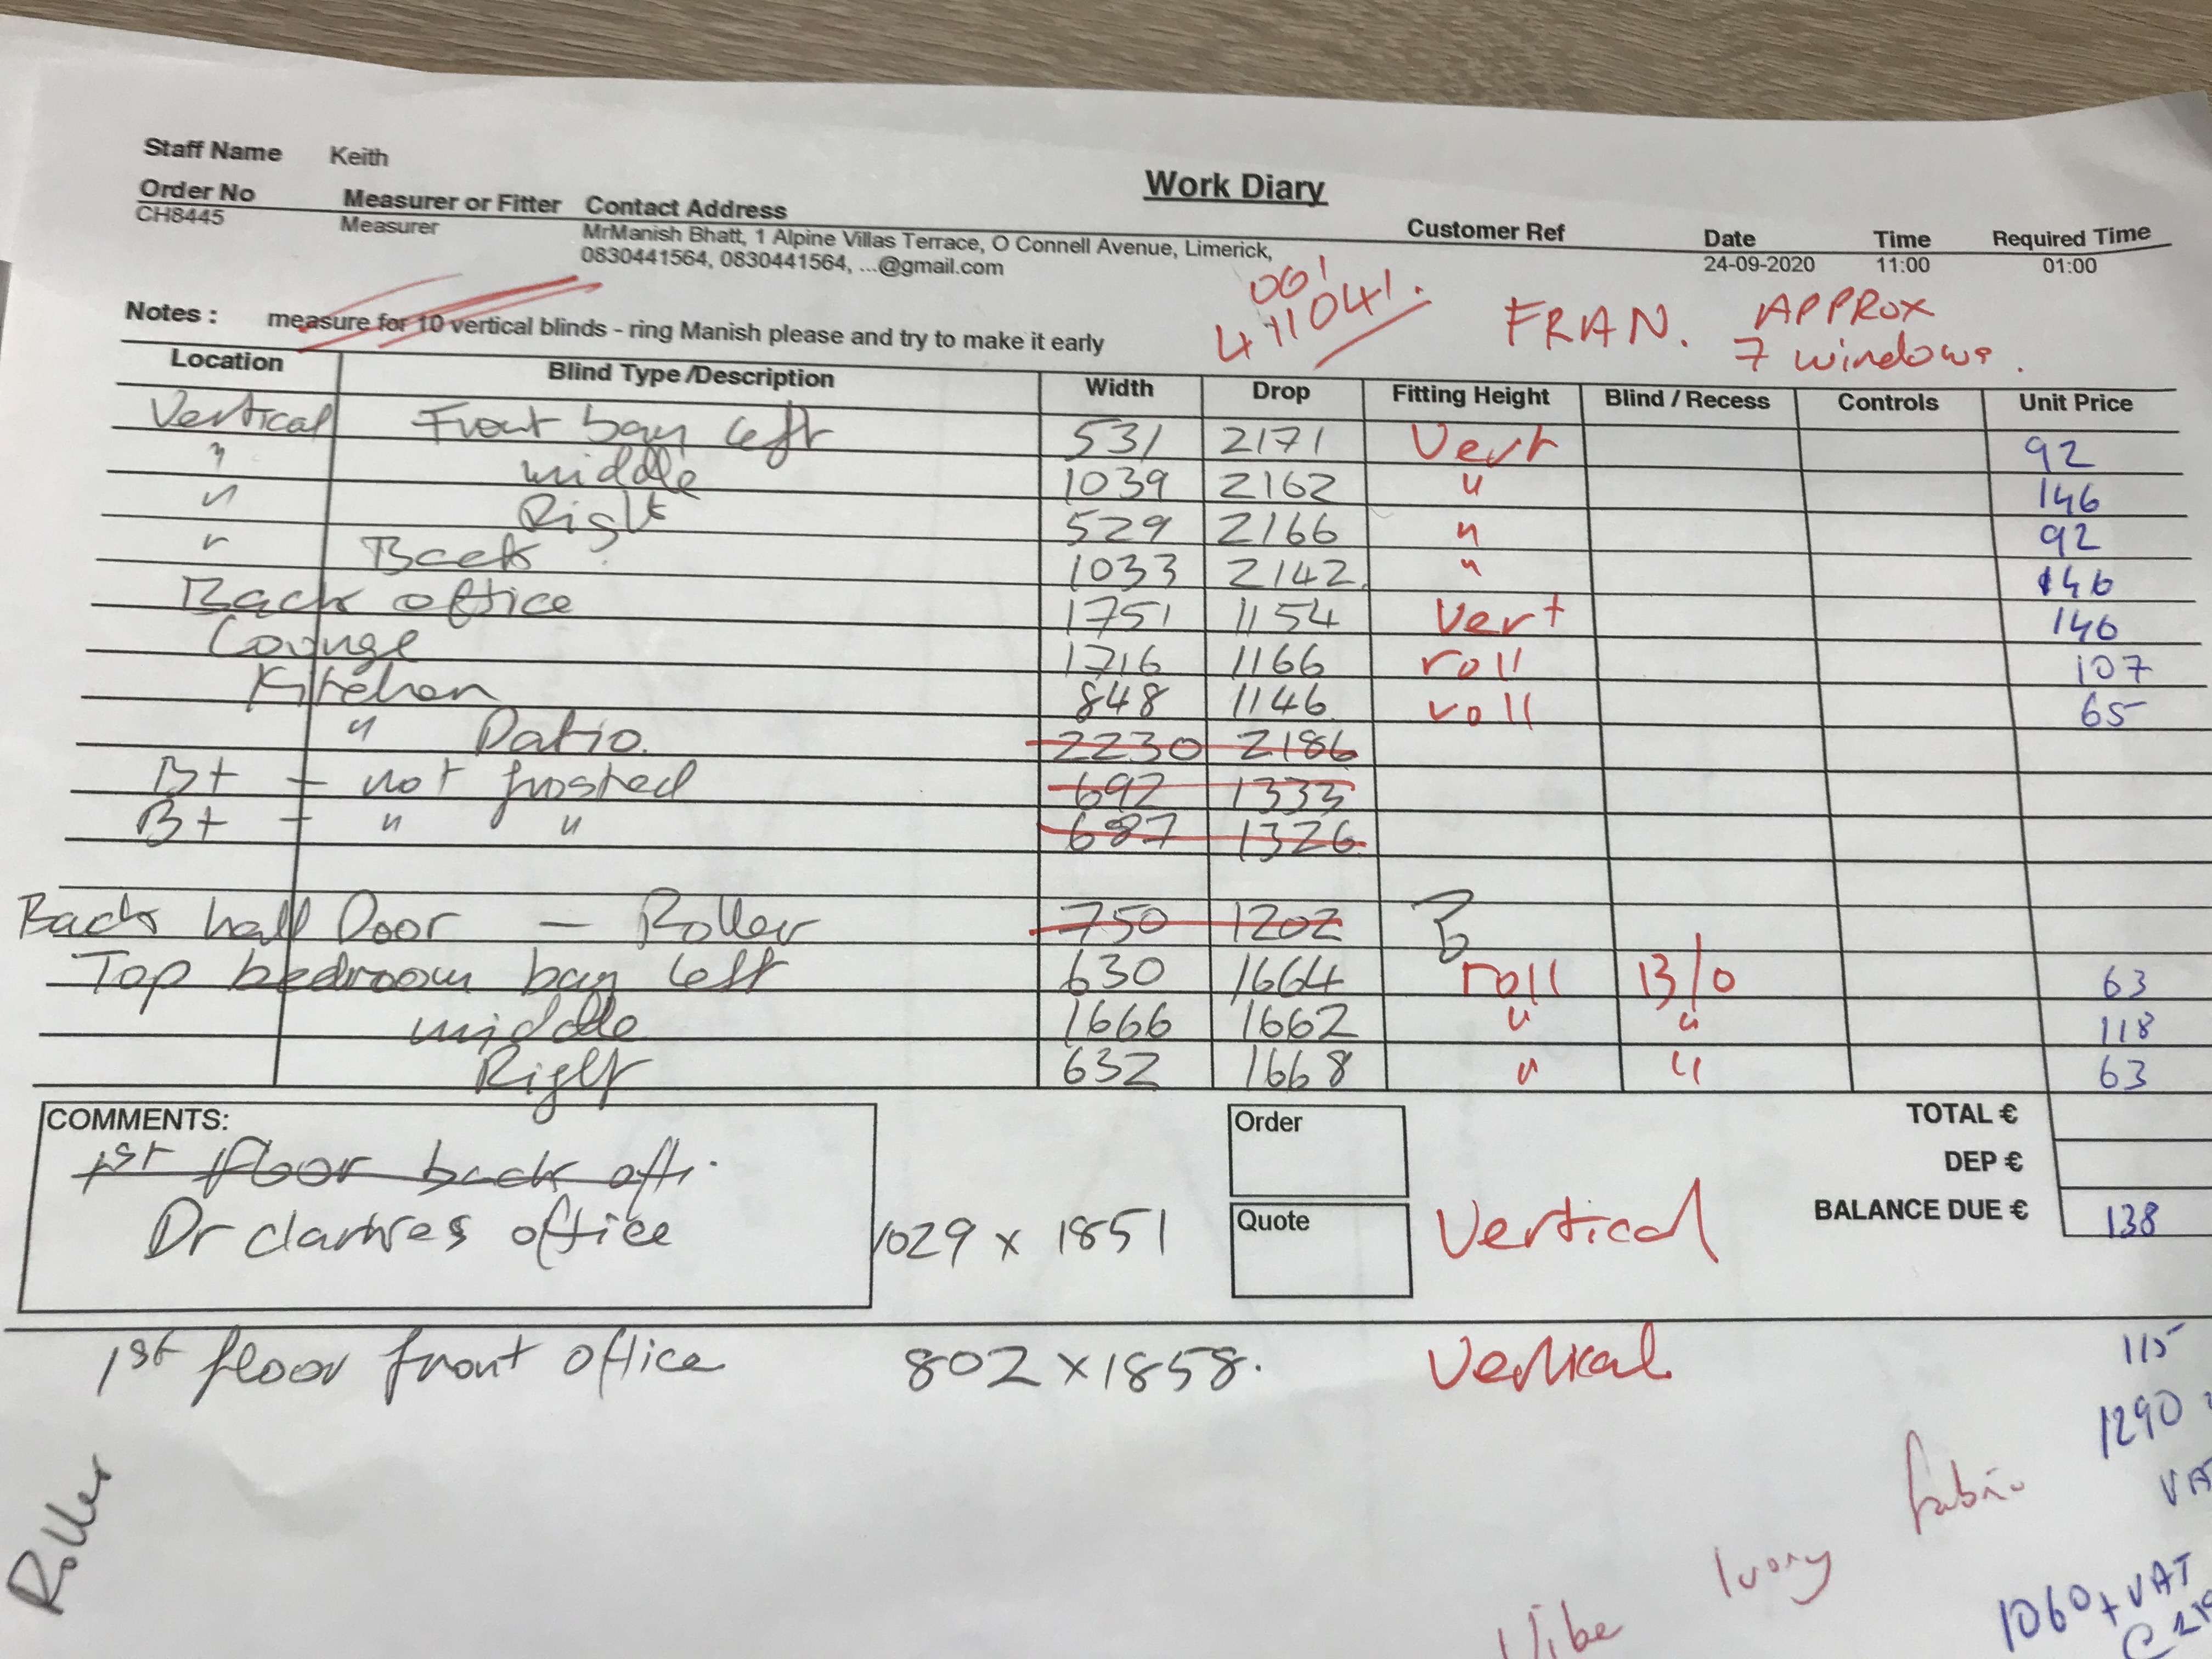 Staff Name Keith
Work Diary
Order No Measurer or Fitter Contact Address Customer Ref Date Time Required Time
CH8445 Measurer MrManish Bhatt, 1 Alpine Villas Terrace, O Connell Avenue, Limerick, 24-09-2020 11:00 01:00
0830441564, 0830441564, ...@gmail.com
FRAN. APPROX
7 windows.
Notes : measure for 10 vertical blinds - ring Manish please and try to make it early
Location Blind Type /Description Width Drop Fitting Height Blind / Recess Controls Unit Price
Vertical Front bay left 531 2171 Vert 92
" middle 1039 2162 " 146
" Right 529 2166 " 92
" Back 1033 2142 " 146
Back office 1751 1154 Vert 146
Lounge 1716 1166 roll 107
Kitchen 848 1146 roll 65
" Patio. 2230 2186
B+ - not frosted 692 1333
B+ - " " 687 1326
Back hall Door - Roller 750 1202
Top bedroom bay left 630 1664 roll B/O 63
middle 1666 1662 " " 118
Right 632 1668 " " 63
COMMENTS: Order TOTAL €
1st floor back offi. DEP €
Dr office 1029 x 1851 Quote Vertical BALANCE DUE € 138
1st floor front office 802 x 1858. Vertical 115
1290
Roller
Vibe Ivory fabric
1060 + VAT